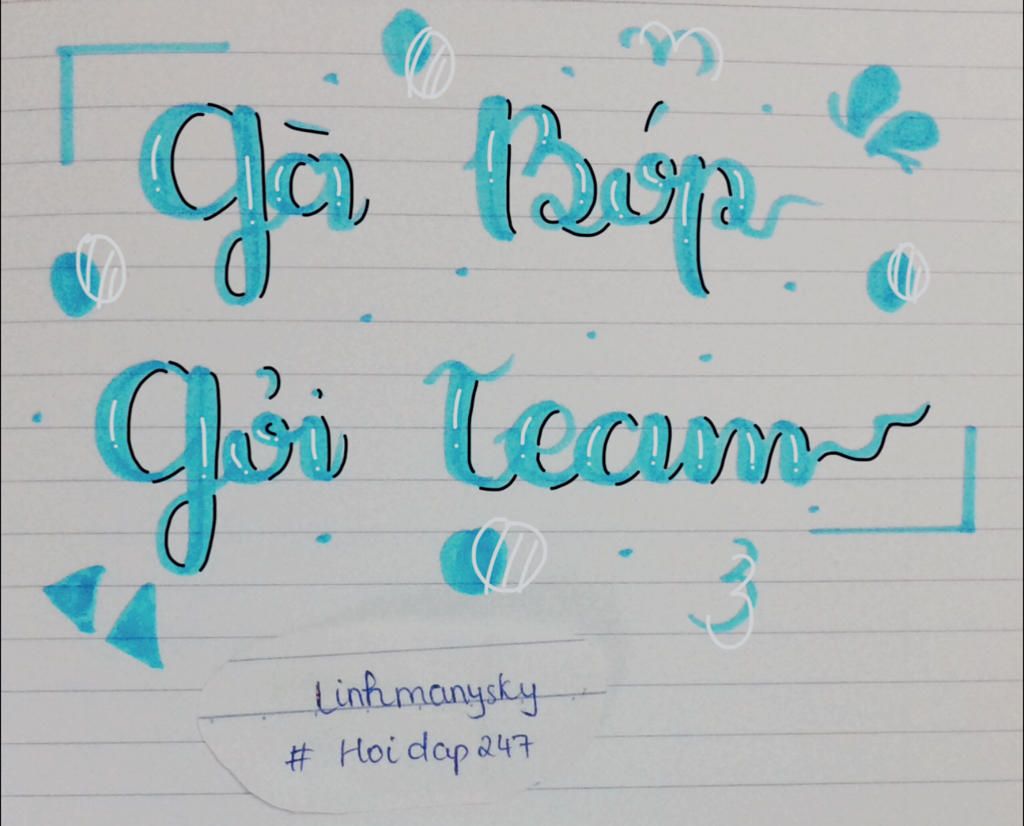 Gà Bóp
Giỏi Team
Linhmanysky
# Hoidap247